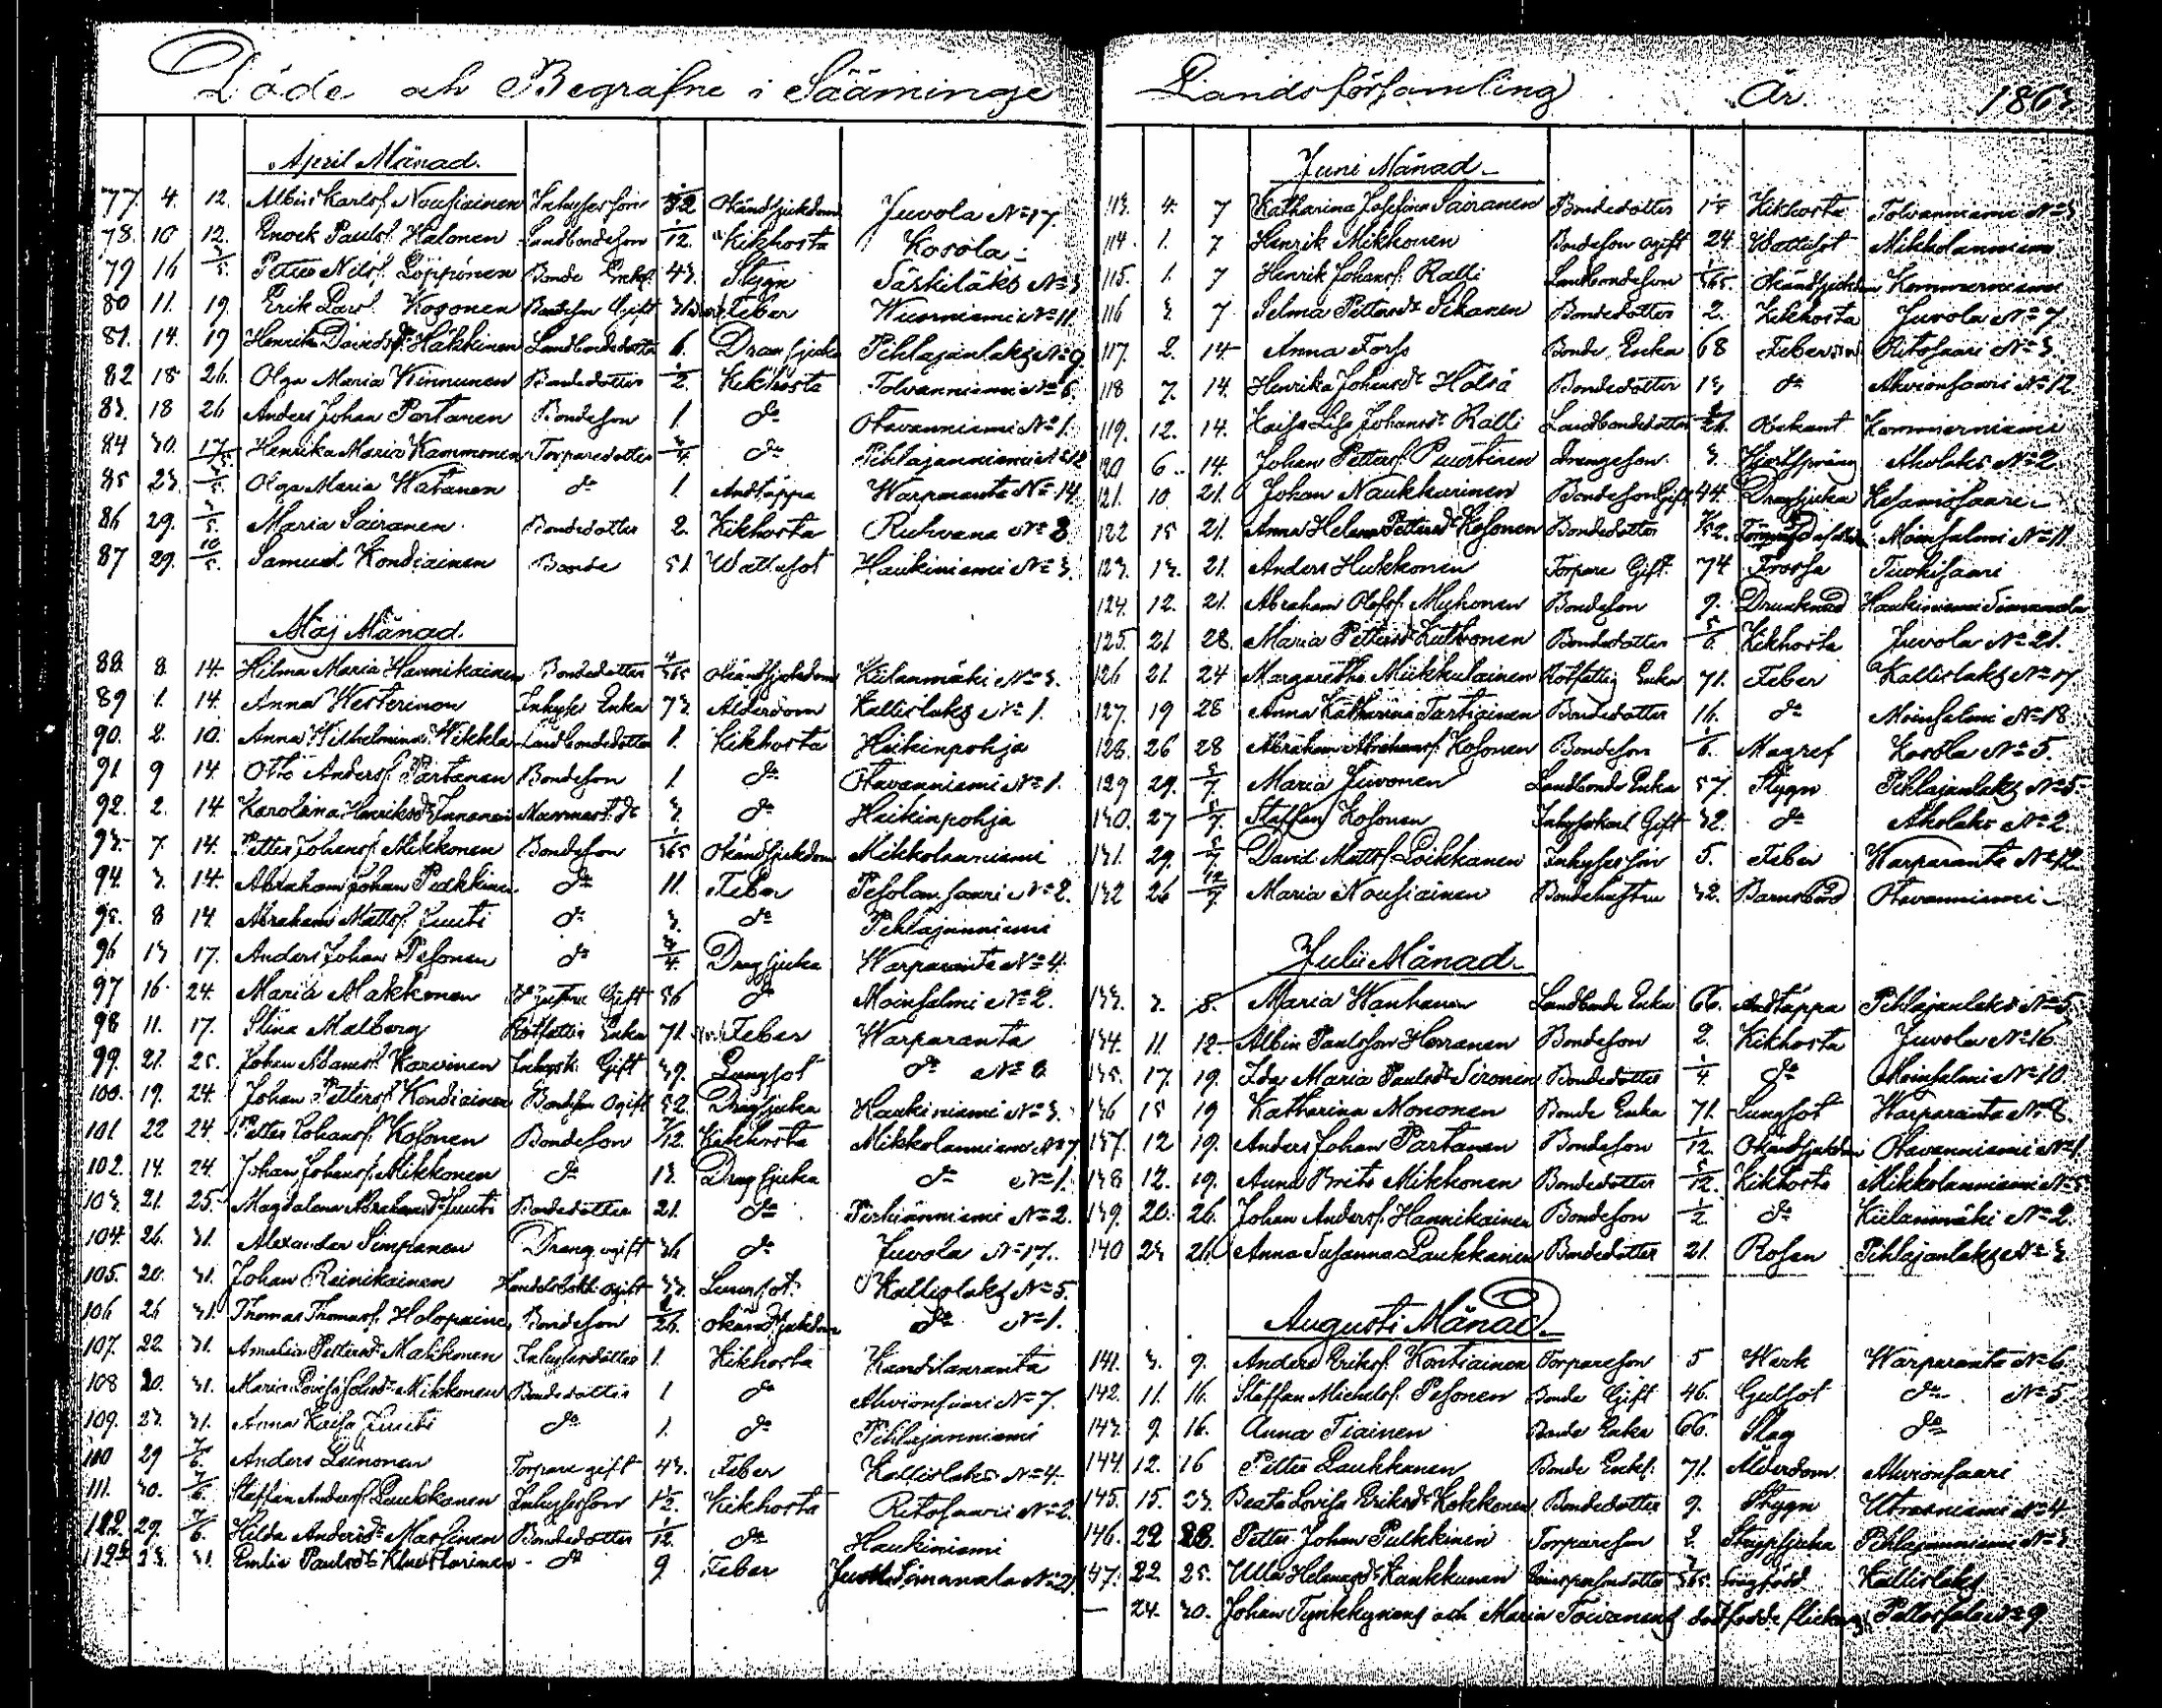 Döde och Begrafne i Sääminge
April Månad.
77. 4. 12. Albin Karlsf. Nousiainen Inhysesson 1/52 Okänd sjukdom Juvola No 17.
78. 10 12. Enock Paulsf. Halonen Landbondeson 1/12. Kikhosta Kosola
79 16 3/5. Petter Nilsf. Löppönen Bonde Enkl. 43. Stygn Särkilaks No 3
80 11. 19. Erik Kosonen Bondeson Ogift Feber Wuorniemi No 11
81. 14. 19 Henrika Davidsdr Häkkinen Landbondedotter 6. Dragsjuka Pihlajanlaks No 9
82 18 26. Olga Maria Kinnunen Bondedotter 1/2. Kikhosta Tolvanniemi No 6.
83. 18 26 Anders Johan Partanen Bondeson 1. do Otavanniemi No 1.
84 30. 17/5 Henrika Maria Kammonen Torparedotter 3/4 do Pihlajanniemi No 12
85 23. 3/5. Olga Maria Watanen do 1. Andtäppa Warparanta No 14.
86 29. 3/5. Maria Sairanen Bondedotter 2. Kikhosta Ruhvana No 8
87 29. 10/5. Samuel Kondiainen Bonde 51. Wattusot Haukiniemi No 3.
Maj Månad.
88. 8. 14. Hilma Maria Hannikainen Bondedotter 4/365 Okänd sjukdom Kiilanmäki No 3.
89 1. 14. Anna Westerinen Inhyses Enka 73. Ålderdom Kallislaks No 1.
90. 2. 10. Anna Wilhelmina Wikkla Landbondedotter 1. Kikhosta Heikinpohja
91 9 14. Otto Andersf. Partanen Bondeson 1. do Otavanniemi No 1.
92. 2. 14. Karolina Henriksdr Innanen 3. do Heikinpohja
93. 7. 14. Petter Johansf. Mikkonen Bondeson 1/365 Okänd sjukdom Mikkolanniemi
94. 3. 14. Abraham Johan Pulkkinen do 11. Feber Pesolansaari No 2.
95. 8 14 Abraham Mattsf. Juuti do 3. do Pihlajanniemi
96 13 17. Anders Johan Pesonen do 3/4. Dragsjuka Warparanta No 4.
97 16. 24. Maria Makkonen Gift 56 do Moinsalmi No 2.
98 11. 17. Stina Malberg Rotfattig Enka 71. Feber Warparanta
99. 21. 25. Johan Adamsf. Karvinen Inhysk. Gift 39. Lungsot do No 8.
100. 19. 24. Johan Pettersf. Kondiainen Bondeson Ogift 52. Dragsjuka Haukiniemi No 3.
101. 22 24. Petter Johansf. Kosonen Bondeson 7/12. Kikhosta Mikkolanniemi No 7
102. 14. 24. Johan Johansf. Mikkonen do 13. Dragsjuka do No 1.
103. 21. 25. Magdalena Abrahamsdr Juuti Bondedotter 21. do Pirhiänniemi No 2.
104. 26. 31. Alexander Simpanen Dräng ogift 36 do Juvola No 17.
105. 20. 31. Johan Reinikainen ogift 33. Lungsot Kallislaks No 5.
106 26 31. Thomas Thomasf. Holopainen Bondeson 2/26. okänd sjukdom do No 1.
107. 22. 31. Amalia Pettersdr Makkonen Inhysesdotter 1. Kikhosta Kandilanranta
108 20. 31. Maria Lovisa Johsdr Mikkonen Bondedotter 1 do Ahvionsaari No 7.
109. 23. 31. Anna Kaisa Juuti do 1. do Pihlajanniemi
110 29 7/6. Anders Leinonen Torpare gift 43. Feber Kallislaks No 4.
111. 30. 7/6. Staffan Andersf. Laukkanen Inhysesson 1 1/2. Kikhosta Ritosaari No 2.
112. 29. 7/6. Hilda Andersdr Massinen Bondedotter 1/12. do Haukiniemi
112½ 23. 31. Emlia Paulsdr do 9 Feber Simanala No 2.
Landsförsamling År 1863
Juni Månad.
113. 4. 7 Katharina Josefina Sairanen Bondedotter Kikhosta Tolvanniemi No 3
114. 1. 7 Henrik Mikkonen Bondeson ogift 24. Wattusot Mikkolanniemi
115. 1. 7 Henrik Johansf. Ralli Landbondeson 1/365. Okänd sjukdom Kommerniemi
116 3 7 Selma Pettersdr Sikanen Bondedotter 2. Kikhosta Juvola No 7.
117. 2. 14. Anna Forss Bonde Enka 68 Feber Ritosaari No 3.
118 7. 14. Henrika Johansdr Hölsä Bondedotter 13 do Ahvionsaari No 12.
119. 12. 14. Kaisa Lisa Johansdr Ralli Landbondedotter 2/26. Obekant Kommerniemi
120 6. 14. Johan Pettersf. Puurtinen Drängeson 3. Hjertsprång Aholaks No 2.
121. 10. 21. Johan Naukkarinen Bondeson Gift 44. Dragsjuka Kesamosaari
122 15 21. Anna Helena Pettersdr Kosonen Bondedotter 1/52. Moinsalmi No 11.
123. 13. 21. Anders Hukkonen Torpare Gift. 74 Frossa Tuohisaari
124. 12. 21. Abraham Olofsf. Muhonen Bondeson 9. Drunknad Haukiniemi Simanala
125. 21 28. Maria Pettersdr Kuhvonen Bondedotter 5/6. Kikhosta Juvola No 21.
126 21. 24 Margaretha Miikkulainen Rotfattig Enka 71. Feber Kallislaks No 17
127. 19 28 Anna Katharina Tartiainen Bondedotter 16. do Moinsalmi No 18
128. 26 28 Abraham Abrahamsf. Kosonen Bondeson 1/6. Magref Kosola No 5.
129 29. 5/7. Maria Juvonen Landbonde Enka 57. Stygn Pihlajanlaks No 5
130. 27 5/7. Staffan Kosonen Inhysekarl Gift 32. do Aholaks No 2.
131. 29. 5/7. David Mattsf. Loikkanen Inhysesson 5. Feber Warparanta No 12
132 26 12/7. Maria Nousiainen Bondehustru 32. Barnsbörd Otavanniemi
Julii Månad.
133. 2. 5. Maria Wanhanen Landbonde Enka 66. Andtäppa Pihlajanlaks No 5.
134. 11. 12. Albin Paulsson Herranen Bondeson 2. Kikhosta Juvola No 16.
135. 17. 19. Ida Maria Paulsdr Sironen Bondedotter 1/4. do Moinsalmi No 10.
136 15 19 Katharina Mononen Bonde Enka 71. Lungsot Warparanta No 8.
137. 12 19. Anders Johan Partanen Bondeson 1/12. Okänd sjukdom Otavanniemi No 1.
138 12. 19. Anna Brita Mikkonen Bondedotter 5/12. Kikhosta Mikkolanniemi No 5
139. 20. 26. Johan Andersf. Hannikainen Bondeson 1/2. do Kiilanmäki No 2.
140 23 26. Anna Susanna Laukkanen Bondedotter 21. Rosen Pihlajanlaks No 3.
Augusti Månad.
141. 3. 9. Anders Eriksf. Kontiainen Torpareson 5 Werk Warparanta No 6.
142. 11. 16. Staffan Michelsf. Pesonen Bonde Gift 46. Gulsot do No 5.
143. 9. 16. Anna Tiainen Bonde Enka 66. Slag do
144. 12. 16 Petter Laukkanen Bonde Enkl. 71. Ålderdom. Ahvionsaari
145. 15. 23. Beata Lovisa Eriksdr Kokkonen Bondedotter 9. Stygn Utrasniemi No 4.
146. 22 23. Petter Johan Pulkkinen Torpareson 2. Strypsjuka Pihlajanniemi No 3.
147. 22. 25. Ulla Helena Kaukkunen Kallislaks
— 24. 30. Johan Tynkkynens och Maria Toivanens dödfödde flickebarn Pellossalo No 9.